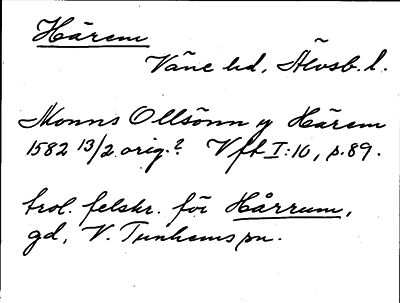 Härem
Väne hd, Älvsb. l.
Monns Ollsönn y Härem
1582 13/2 orig.? Vft I:10, p. 89.
trol. felskr. för Hårrum,
gd, V. Tunhems sn.